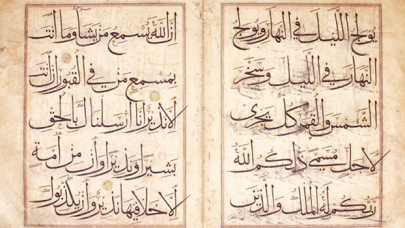 يولج الليل في النهار ويولج
النهار في الليل وسخر
الشمس والقمر كل يجرى
لاجل مسمى ذلكم الله
ربكم له الملك والذين
ان الله يسمع من يشا وما انت
بمسمع من في القبور ان انت
الا نذير انا ارسلناك بالحق
بشيرا ونذيرا وان من امة
الا خلا فيها نذير وان يكذبوك